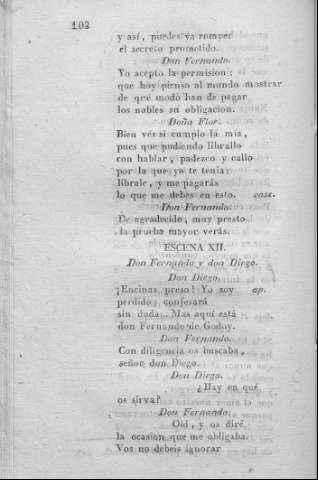 102
y así, puedes ya romper
el secreto prometido.
Don Fernando.
Yo acepto la permision;
que hoy pienso al mundo mostrar
de qué modo han de pagar
los nobles su obligacion.
Doña Flor.
Bien vés si cumplo la mia,
pues que pudiendo librallo
con hablar, padezco y callo
por la que yo te tenia:
librale, y me pagarás
lo que me debes en esto. vase.
Don Fernando.
De agradecido, muy presto
la prueba mayor verás.
ESCENA XII.
Don Fernando y don Diego.
Don Diego.
¡Encinas preso! Yo soy ap.
perdido; confesará
sin duda...Mas aqui está
don Fernando de Godoy.
Don Fernando.
Con diligencia os buscaba,
señor don Diego.
Don Diego.
¿Hay en qué
os sirva?
Don Fernando.
Oid, y os diré
la ocasion que me obligaba.
Vos no debeis ignorar